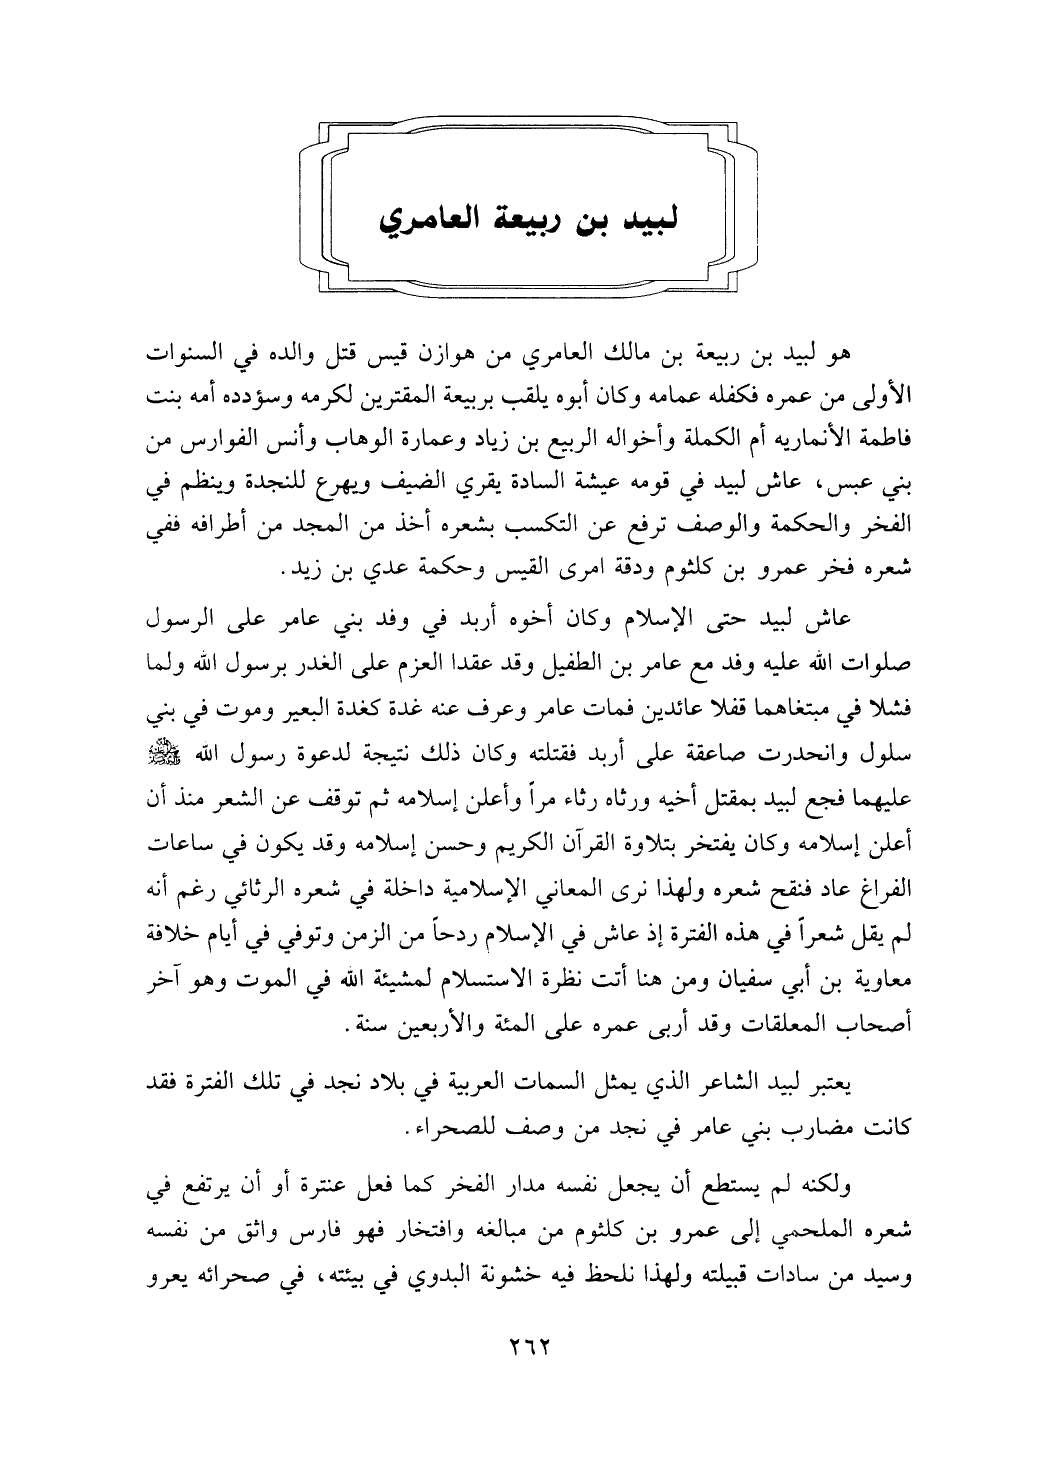 لبيد بن ربيعة العامري
هو لبيد بن ربيعة بن مالك العامري من هوازن قيس قتل والده في السنوات
الأولى من عمره فكفله عمامه وكان أبوه يلقب بربيعة المقترين لكرمه وسؤدده أمه بنت
فاطمة الأنماريه أم الكملة وأخواله الربيع بن زياد وعمارة الوهاب وأنس الفوارس من
بني عبس، عاش لبيد في قومه عيشة السادة يقري الضيف ويهرع للنجدة وينظم في
الفخر والحكمة والوصف ترفع عن التكسب بشعره أخذ من المجد من أطرافه ففي
شعره فخر عمرو بن كلثوم ودقة امرى القيس وحكمة عدي بن زيد.
عاش لبيد حتى الإسلام وكان أخوه أربد في وفد بني عامر على الرسول
صلوات الله عليه وفد مع عامر بن الطفيل وقد عقدا العزم على الغدر برسول الله ولما
فشلا في مبتغاهما قفلا عائدين فمات عامر وعرف عنه غدة كغدة البعير وموت في بني
سلول وانحدرت صاعقة على أربد فقتلته وكان ذلك نتيجة لدعوة رسول الله ﷺ
عليهما فجع لبيد بمقتل أخيه ورثاه رثاء مراً وأعلن إسلامه ثم توقف عن الشعر منذ أن
أعلن إسلامه وكان يفتخر بتلاوة القرآن الكريم وحسن إسلامه وقد يكون في ساعات
الفراغ عاد فنقح شعره ولهذا نرى المعاني الإسلامية داخلة في شعره الرثائي رغم أنه
لم يقل شعراً في هذه الفترة إذ عاش في الإسلام ردحاً من الزمن وتوفي في أيام خلافة
معاوية بن أبي سفيان ومن هنا أتت نظرة الاستسلام لمشيئة الله في الموت وهو آخر
أصحاب المعلقات وقد أربى عمره على المئة والأربعين سنة.
يعتبر لبيد الشاعر الذي يمثل السمات العربية في بلاد نجد في تلك الفترة فقد
كانت مضارب بني عامر في نجد من وصف للصحراء.
ولكنه لم يستطع أن يجعل نفسه مدار الفخر كما فعل عنترة أو أن يرتفع في
شعره الملحمي إلى عمرو بن كلثوم من مبالغه وافتخار فهو فارس واثق من نفسه
وسيد من سادات قبيلته ولهذا نلحظ فيه خشونة البدوي في بيئته، في صحرائه يعرو
٢٦٢